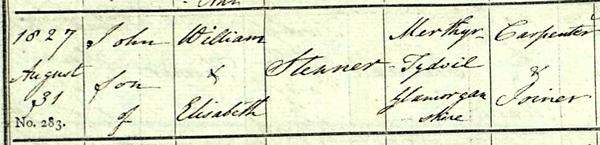 1827 John William Merthyr- Carpenter
August son & Stenner Tydvil &
31 of Elisabeth Glamorgan Joiner
No. 283. shire